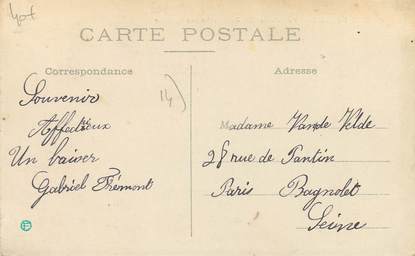 CARTE POSTALE
Correspondance
Souvenir
Affectueux
Un baiser
Gabriel Frémont
14
Adresse
Madame Van de Velde
28 rue de Pantin
Paris Bagnolet
Seine